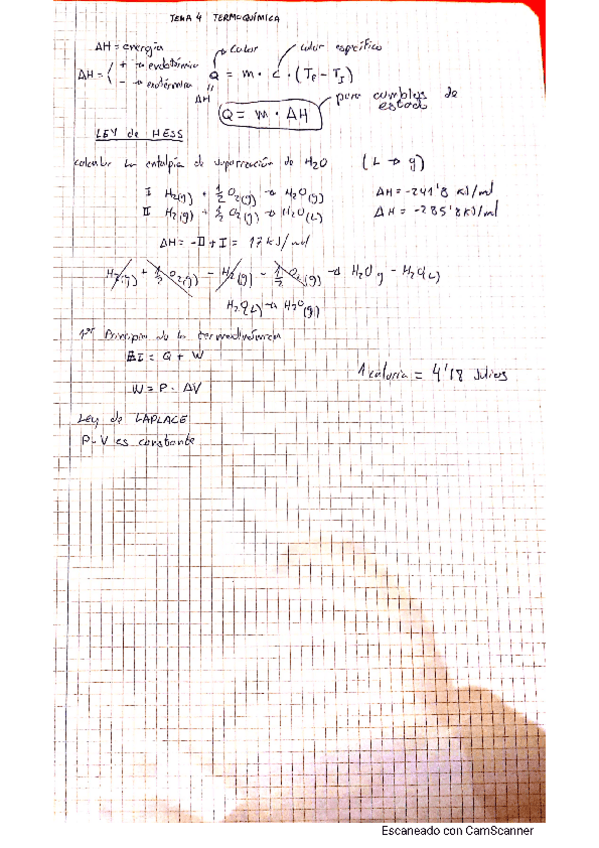 TEMA 4 TERMOQUÍMICA
ΔH = energía
ΔH = { + → endotérmica
- → exotérmica
calor
calor específico
Q = m · c · (Tf - TI)
ΔH
Q = m · ΔH
para cambios de estado
LEY de HESS
calcular la entalpía de vaporización de H2O (L → g)
I H2(g) + 1/2 O2(g) → H2O(g) ΔH = -241'8 KJ/mol
II H2(g) + 1/2 O2(g) → H2O(L) ΔH = -285'8 KJ/mol
ΔH = -II + I = 17 KJ/mol
H2(g) + 1/2 O2(g) - H2(g) - 1/2 O2(g) → H2O g - H2O(L)
H2O(L) → H2O(g)
1er Principio de la termodinámica
ΔI = Q + W
1 caloría = 4'18 Julios
W = P · ΔV
Ley de LAPLACE
P-V es constante
Escaneado con CamScanner